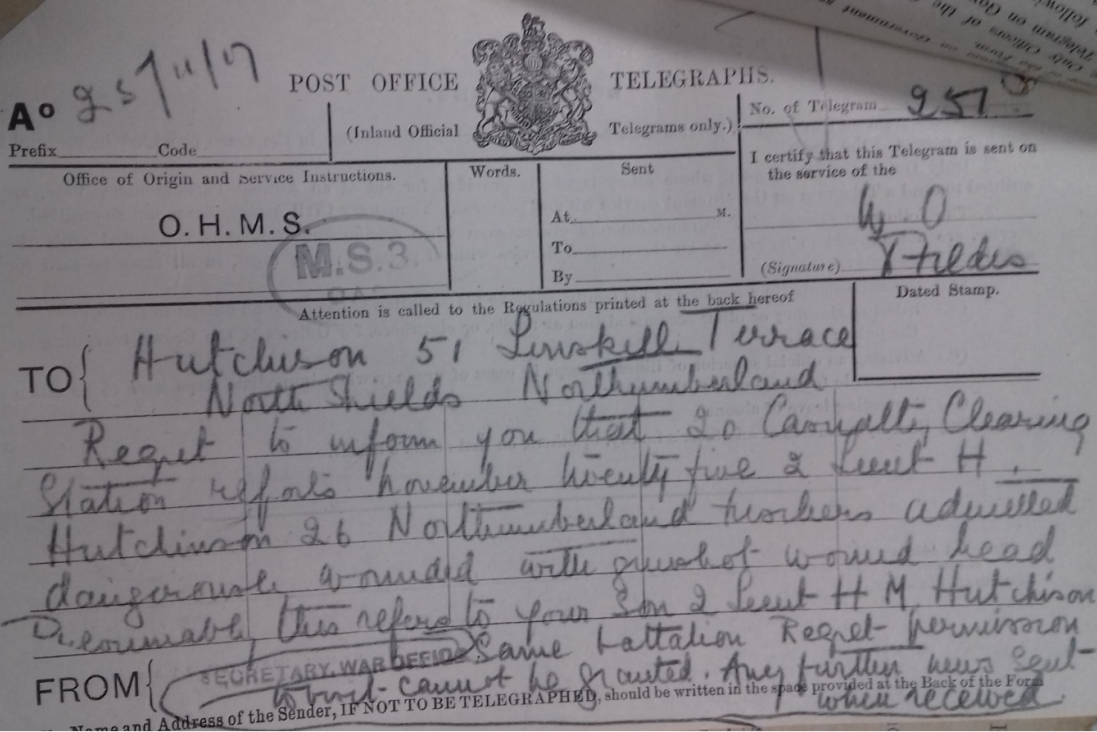 POST OFFICE TELEGRAPHS.
Aº 25/11/17
(Inland Official Telegrams only.)
No. of Telegram
Prefix Code
I certify that this Telegram is sent on
the service of the
W O
(Signature)
Office of Origin and Service Instructions.
O.H.M.S.
M.S.3.
Words.
Sent
At M.
To
By
Attention is called to the Regulations printed at the back hereof
Dated Stamp.
TO Hutchison 51 Linskill Terrace
North Shields Northumberland
Regret to inform you that 20 Casualty Clearing
Station reports november twenty five 2 Lieut H.
Hutchinson 26 Northumberland Fusiliers admitted
dangerously wounded with gunshot wound head
Presumably this refers to your Son 2 Lieut H M Hutchison
Same battalion Regret permission
to visit cannot be granted. Any further news sent
when received
FROM SECRETARY, WAR OFFICE
Name and Address of the Sender, IF NOT TO BE TELEGRAPHED, should be written in the space provided at the Back of the Form